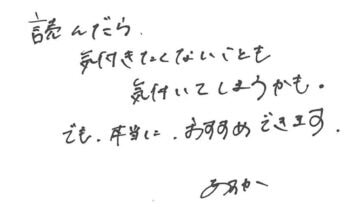 読んだら、
気付きたくないことも
気付いてしまうかも。
でも、本当に、おすすめできます。